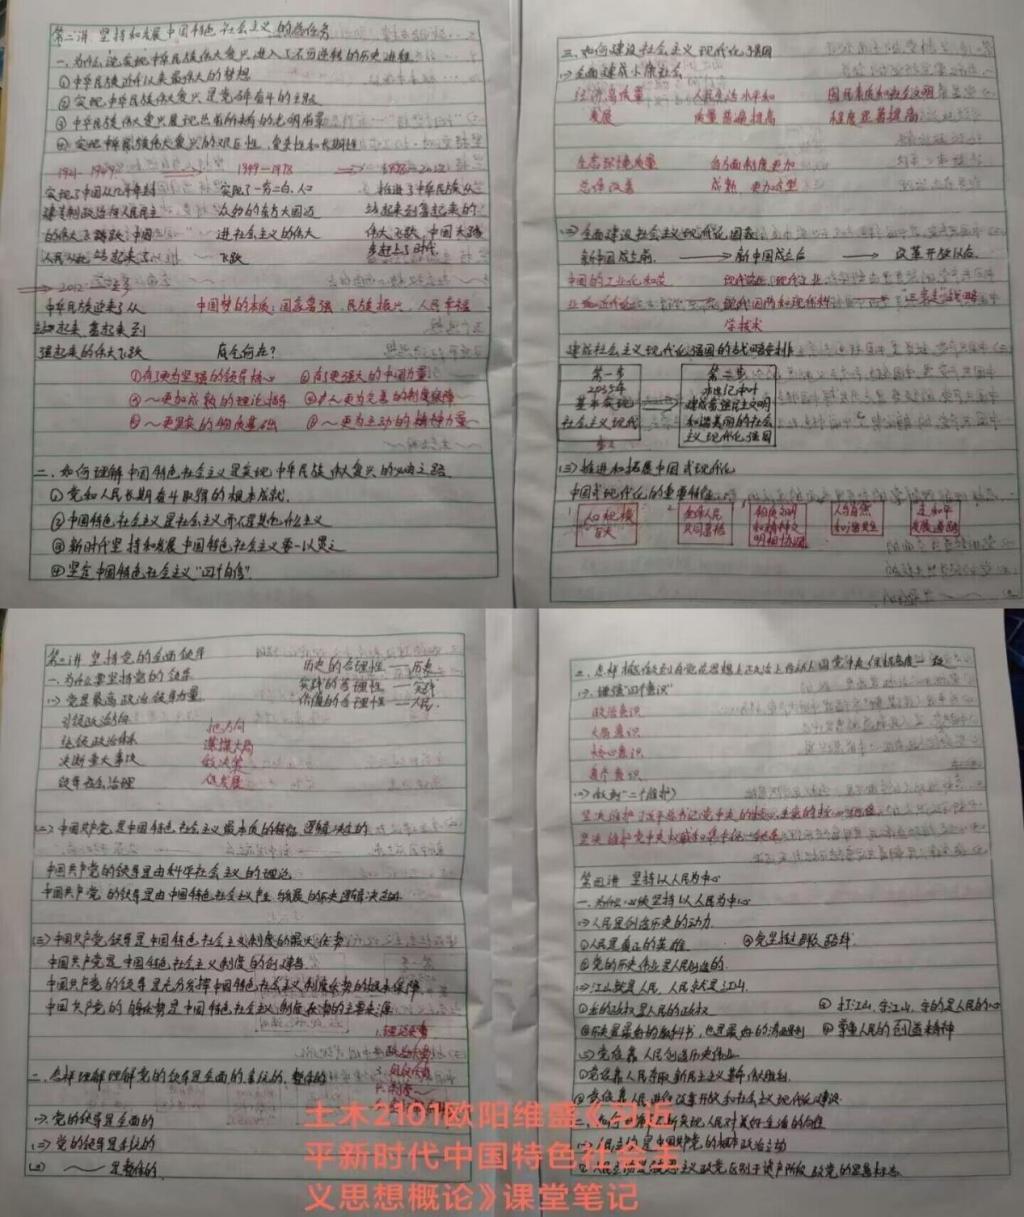 第二讲 坚持和发展中国特色社会主义的总任务
一、为什么说实现中华民族伟大复兴进入了不可逆转的历史进程
①中华民族近代以来最伟大的梦想
②实现中华民族伟大复兴是党百年奋斗的主题
③中华民族伟大复兴展现出前所未有的光明前景
④实现中华民族伟大复兴的艰巨性、复杂性和长期性
1921—1949 → 1949—1978 → 1978—2012
实现了中国从几千年封 实现了一穷二白、人口 推进了中华民族从
建专制政治向人民民主 众多的东方大国迈 站起来到富起来的
的伟大飞跃 中国 进社会主义的伟大 伟大飞跃,中国大踏
人民从此站起来了 飞跃 步赶上了时代
→ 2012—
中华民族迎来了从 中国梦的本质:国家富强、民族振兴、人民幸福
站起来、富起来到
强起来的伟大飞跃 底气何在?
①有了更为坚强的领导核心 ②有了更强大的中国力量
③~更加成熟的理论指导 更为完善的制度保障
⑤~更坚实的物质基础 ⑥~更为主动的精神力量
二、如何理解中国特色社会主义是实现中华民族伟大复兴的必由之路
①党和人民长期奋斗取得的根本成就.
②中国特色社会主义是社会主义而不是其他什么主义
③新时代坚持和发展中国特色社会主义要一以贯之
④坚定中国特色社会主义“四个自信”
三、如何建设社会主义现代化强国
(一)全面建成小康社会
经济高质量 人民生活水平和 国民素质和社会文明
发展 质量普遍提高 程度显著提高
生态环境质量 各方面制度更加
总体改善 成熟 更加定型
(二)全面建设社会主义现代化国家
新中国成立前 → 新中国成立后 → 改革开放以后
中国的工业化和农 现代农业、现代工业、
现代国防和现代科
学技术
建成社会主义现代化强国的战略安排
第一步 第二步
2035年 本世纪中叶
基本实现 建成富强民主文明
社会主义现代 和谐美丽的社会主
义现代化强国
(三)推进和拓展中国式现代化
中国式现代化的重要特征
人口规模 全体人民 物质文明 人与自然 走和平
巨大 共同富裕 和精神文 和谐共生 发展道路
明相协调
第三讲 坚持党的全面领导
一、为什么要坚持党的领导
历史的合理性 — 历史
实践的合理性 — 实践
价值的合理性 — 人民
(一)党是最高政治领导力量
引领政治方向 把方向
统领政治体系 谋大局
决断重大事项 做决策
领导社会治理 促发展
(二)中国共产党是中国特色社会主义最本质的特征 逻辑决定的
中国共产党的领导是由科学社会主义的理论
中国共产党的领导是由中国特色社会主义产生与发展的历史逻辑决定的
(三)中国共产党领导是中国特色社会主义制度的最大优势
中国共产党是中国特色社会主义制度的创建者
中国共产党的领导是充分发挥中国特色社会主义制度优势的根本保障
中国共产党的自身优势是中国特色社会主义制度优势的主要来源
1.理论优势
2.政治优势
3.组织优势
二、怎样理解理解党的领导是全面的、系统的、整体的
(一)党的领导是全面的
(二)党的领导是系统的
(三) ~ 是整体的
(一)增强“四个意识”
政治意识
大局意识
核心意识
看齐意识
(二)做到“两个维护”
坚决维护习近平总书记党中央的核心、全党的核心地位
坚决维护党中央权威和集中统一领导
第四讲 坚持以人民为中心
一、为什么必须坚持以人民为中心
(一)人民是创造历史的动力.
①人民是真正的英雄 ③党坚持群众路线
②党的历史伟业是人民创造的.
(二)江山就是人民 人民就是江山.
①党的政权是人民的政权 ③打江山、守江山,守的是人民的心
②历史是最好的教科书,也是最好的清醒剂 ④尊重人民的首创精神
(三)党依靠人民创造历史伟业
①党依靠人民夺取新民主主义革命胜利.
②党依靠人民进行改革开放和社会主义现代化建设
二、如何不断实现人民对美好生活的向往
土木2101欧阳维盛《习近
平新时代中国特色社会主
义思想概论》课堂笔记